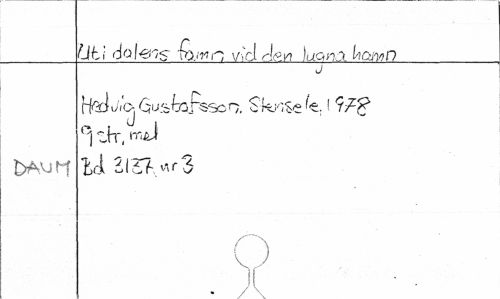 Uti dalens famn vid den lugna hamn
Hedvig Gustafsson. Stensele, 1978
9 str, mel
DAUM Bd 3137, nr 3